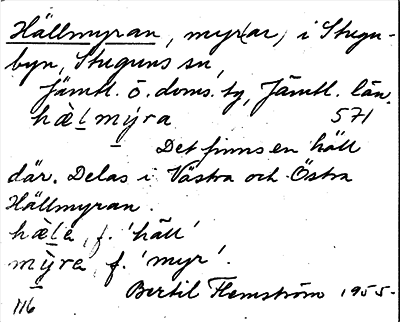 Hällmyran, myr(ar) i Stugu-
byn, Stuguns sn,
Jämtl. ö. doms. tg, Jämtl. län.
hæ̀l mýra 571
Det finns en häll
där. Delas i Västra och Östra
Hällmyran.
hæ̀lа, f. 'häll'
mỳra, f. 'myr'.
Bertil Flemström 1955-
116